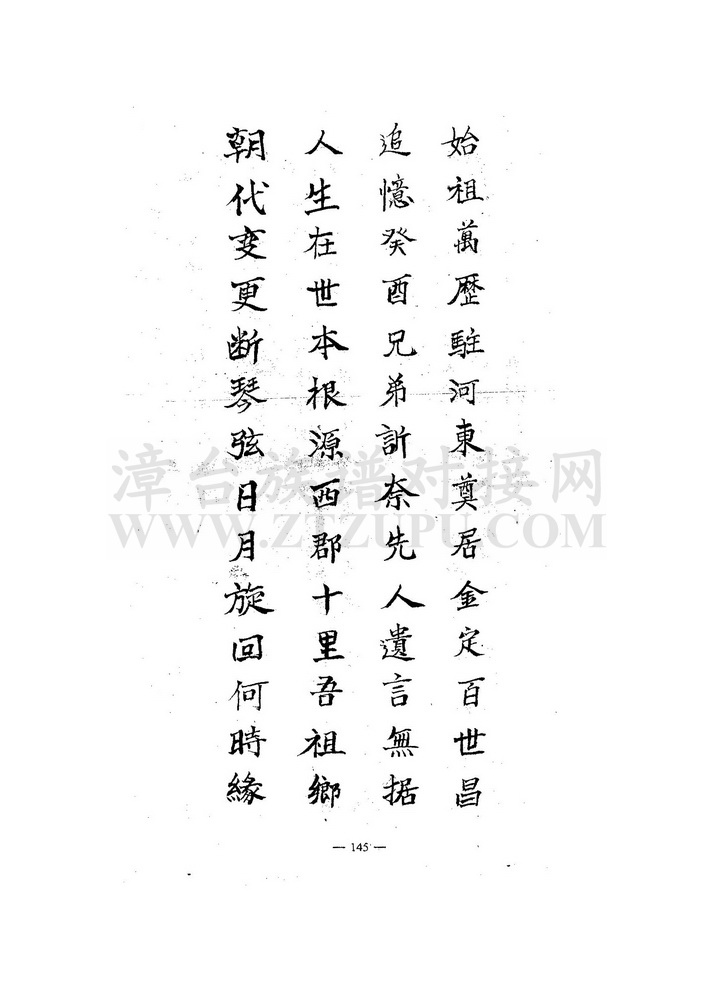 始祖萬歷駐河東奠居金定百世昌
追憶癸酉兄弟訢奈先人遺言無据
人生在世本根源西郡十里吾祖鄉
朝代变更断琴弦日月旋回何時緣
漳台族谱对接网
WWW.ZTZUPU.COM
— 145 —